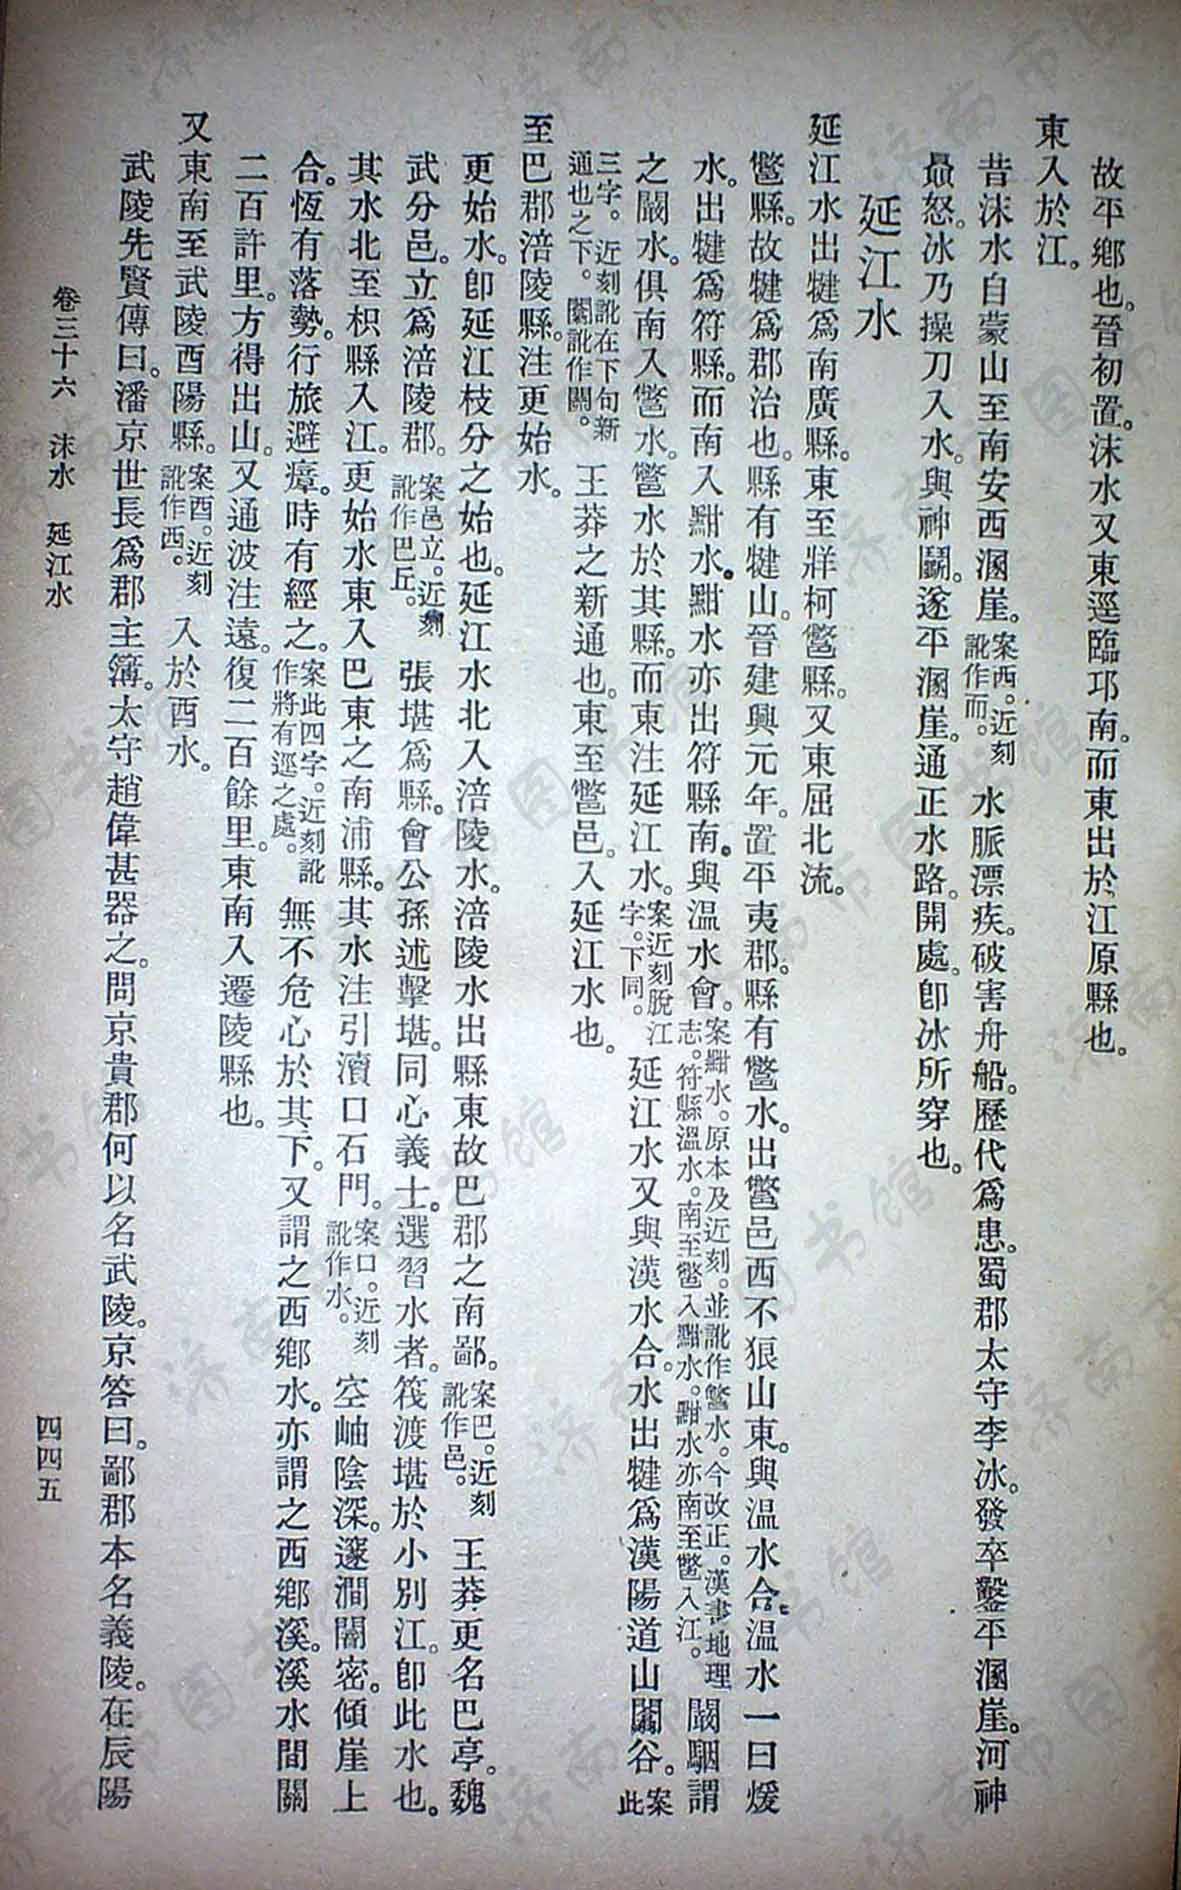 故平鄉也。晉初置。沫水又東逕臨邛南。而東出於江原縣也。
東入於江。
昔沫水自蒙山至南安西溷崖。案西。近刻訛作而。水脈漂疾。破害舟船。歷代爲患。蜀郡太守李冰。發卒鑿平溷崖。河神
贔怒。冰乃操刀入水。與神鬭。遂平溷崖。通正水路。開處。卽冰所穿也。
延江水
延江水出犍爲南廣縣。東至牂柯鄨縣。又東屈北流。
鄨縣。故犍爲郡治也。縣有犍山。晉建興元年。置平夷郡。縣有鄨水。出鄨邑西不狼山東。與溫水合。溫水一曰煖
水。出犍爲符縣。而南入黚水。黚水亦出符縣南。與溫水會。案黚水。原本及近刻。並訛作鄨水。今改正。漢書地理志。符縣溫水。南至鄨入黚水。黚水亦南至鄨入江。闞駰謂
之闞水。俱南入鄨水。鄨水於其縣。而東注延江水。案近刻脫江字。下同。延江水又與漢水合。水出犍爲漢陽道山闟谷。案此
三字。近刻訛在下句新通也之下。闟訛作闒。王莽之新通也。東至鄨邑。入延江水也。
至巴郡涪陵縣。注更始水。
更始水。卽延江枝分之始也。延江水北入涪陵水。涪陵水出縣東故巴郡之南鄙。案巴。近刻訛作邑。王莽更名巴亭。魏
武分邑。立爲涪陵郡。案邑立。近刻訛作巴丘。張堪爲縣。會公孫述擊堪。同心義士。選習水者。筏渡堪於小別江。卽此水也。
其水北至枳縣入江。更始水東入巴東之南浦縣。其水注引瀆口石門。案口。近刻訛作水。空岫陰深。邃澗闇密。傾崖上
合。恆有落勢。行旅避瘴。時有經之。案此四字。近刻訛作將有逕之處。無不危心於其下。又謂之西鄉水。亦謂之西鄉溪。溪水間關
二百許里。方得出山。又通波注遠。復二百餘里。東南入遷陵縣也。
又東南至武陵酉陽縣。案酉。近刻訛作西。入於酉水。
武陵先賢傳曰。潘京世長爲郡主簿。太守趙偉甚器之。問京貴郡何以名武陵。京答曰。鄙郡本名義陵。在辰陽
卷三十六　沫水　延江水
四四五